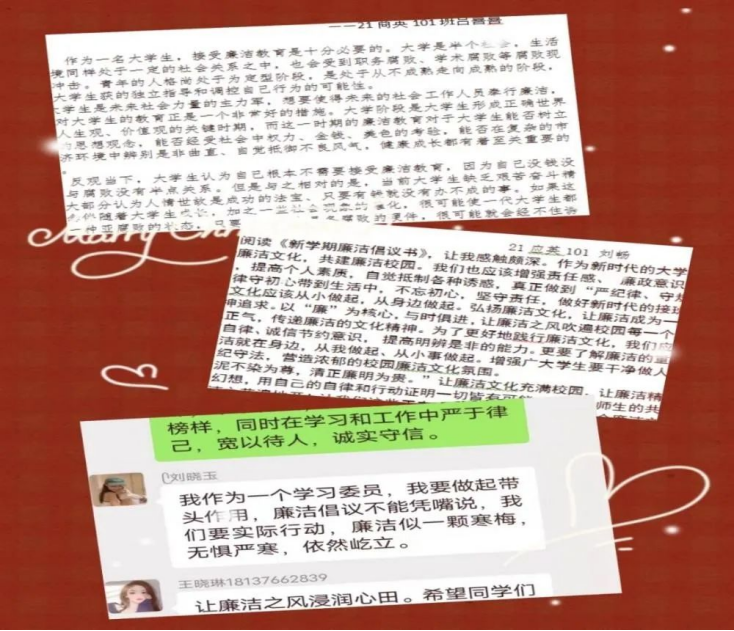 ——21 商英 101 班吕蓄蓄
作为一名大学生，接受廉洁教育是十分必要的。大学是半个社会，生活
境同样处于一定的社会关系之中，也会受到职务腐败、学术腐败等腐败观
冲击。青年的人格尚处于为定型阶段，是处于从不成熟走向成熟的阶段，
大学生获的独立指导和调控自己行为的可能性。
大学生是未来社会力量的主力军，想要使得未来的社会工作人员奉行廉洁，
对大学生的教育正是一个非常好的措施。大学阶段是大学生形成正确世界
人生观、价值观的关键时期，而这一时期的廉洁教育对于大学生能否树立
的思想观念，能否经受社会中权力、金钱、美色的考验，能否在复杂的市
济环境中辨别是非曲直、自觉抵御不良风气，健康成长都有着至关重要的
。
反观当下，大学生认为自己根本不需要接受廉洁教育，因为自己没钱没
与腐败没有半点关系。但是与之相对的是，当前大学生缺乏艰苦奋斗精
大部分认为人情世故是成功的法宝，只要有钱就没有办不成的事。如果这
随着大学生成长，加之一些 催化，很可能使一代大学生都
腐败的 只要 腐败的事件，很可能就会经不住
Merry
21 应英 101 刘畅
阅读《新学期廉洁倡议书》，让我感触颇深。作为新时代的大学
廉洁文化，共建廉洁校园。我们也应该增强责任感、廉政意识
，提高个人素质，自觉抵制各种诱惑，真正做到“严纪律、守规
律守初心带到生活中，不忘初心，坚守责任，做好新时代的接班
文化应该从小做起，从身边做起。弘扬廉洁文化，让廉洁成为一
神追求。以“廉”为核心，与时俱进，让廉洁之风吹遍校园每一个
正气，传递廉洁的文化精神。为了更好地践行廉洁文化，我们应
自律、诚信节约意识，提高明辨是非的能力。更要了解廉洁的重
洁就在身边，从我做起、从小事做起。增强广大学生要干净做人
纪守法，营造浓郁的校园廉洁文化氛围。
泥不染为尊，清正廉明为贵。”让廉洁文化充满校园，让廉洁精
幻想，用自己的自律和行动证明一切皆有可能 师生的共
榜样，同时在学习和工作中严于律
己，宽以待人，诚实守信。
刘晓玉
我作为一个学习委员，我要做起带
头作用，廉洁倡议不能凭嘴说，我
们要实际行动，廉洁似一颗寒梅，
无惧严寒，依然屹立。
王晓琳18137662839
让廉洁之风浸润心田。希望同学们